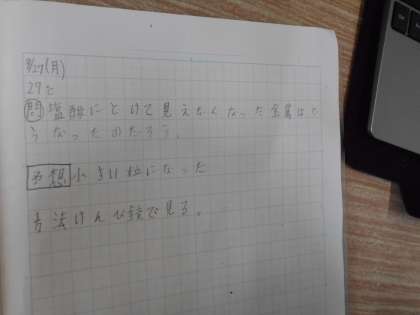 8/27(月)
27℃
問 塩酸にとけて見えなくなった金属はど
うなったのだろう。
予想 小さい粒になった
方法 けんび鏡で見る。